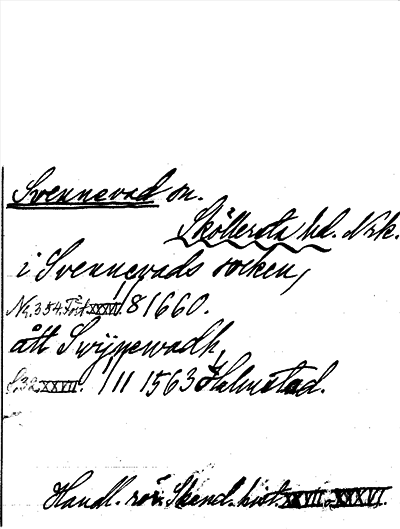 Svennevad sn.
Sköllersta hd. Nrk.
i Svennevads socken,
N:r 354. Tört XXXVI. /8 1660.
ått Swijnewadh,
S. 32 XXVII. /11 1563 Halmstad.
Handl. rör. Skand. hist. XXVII, XXXVI.